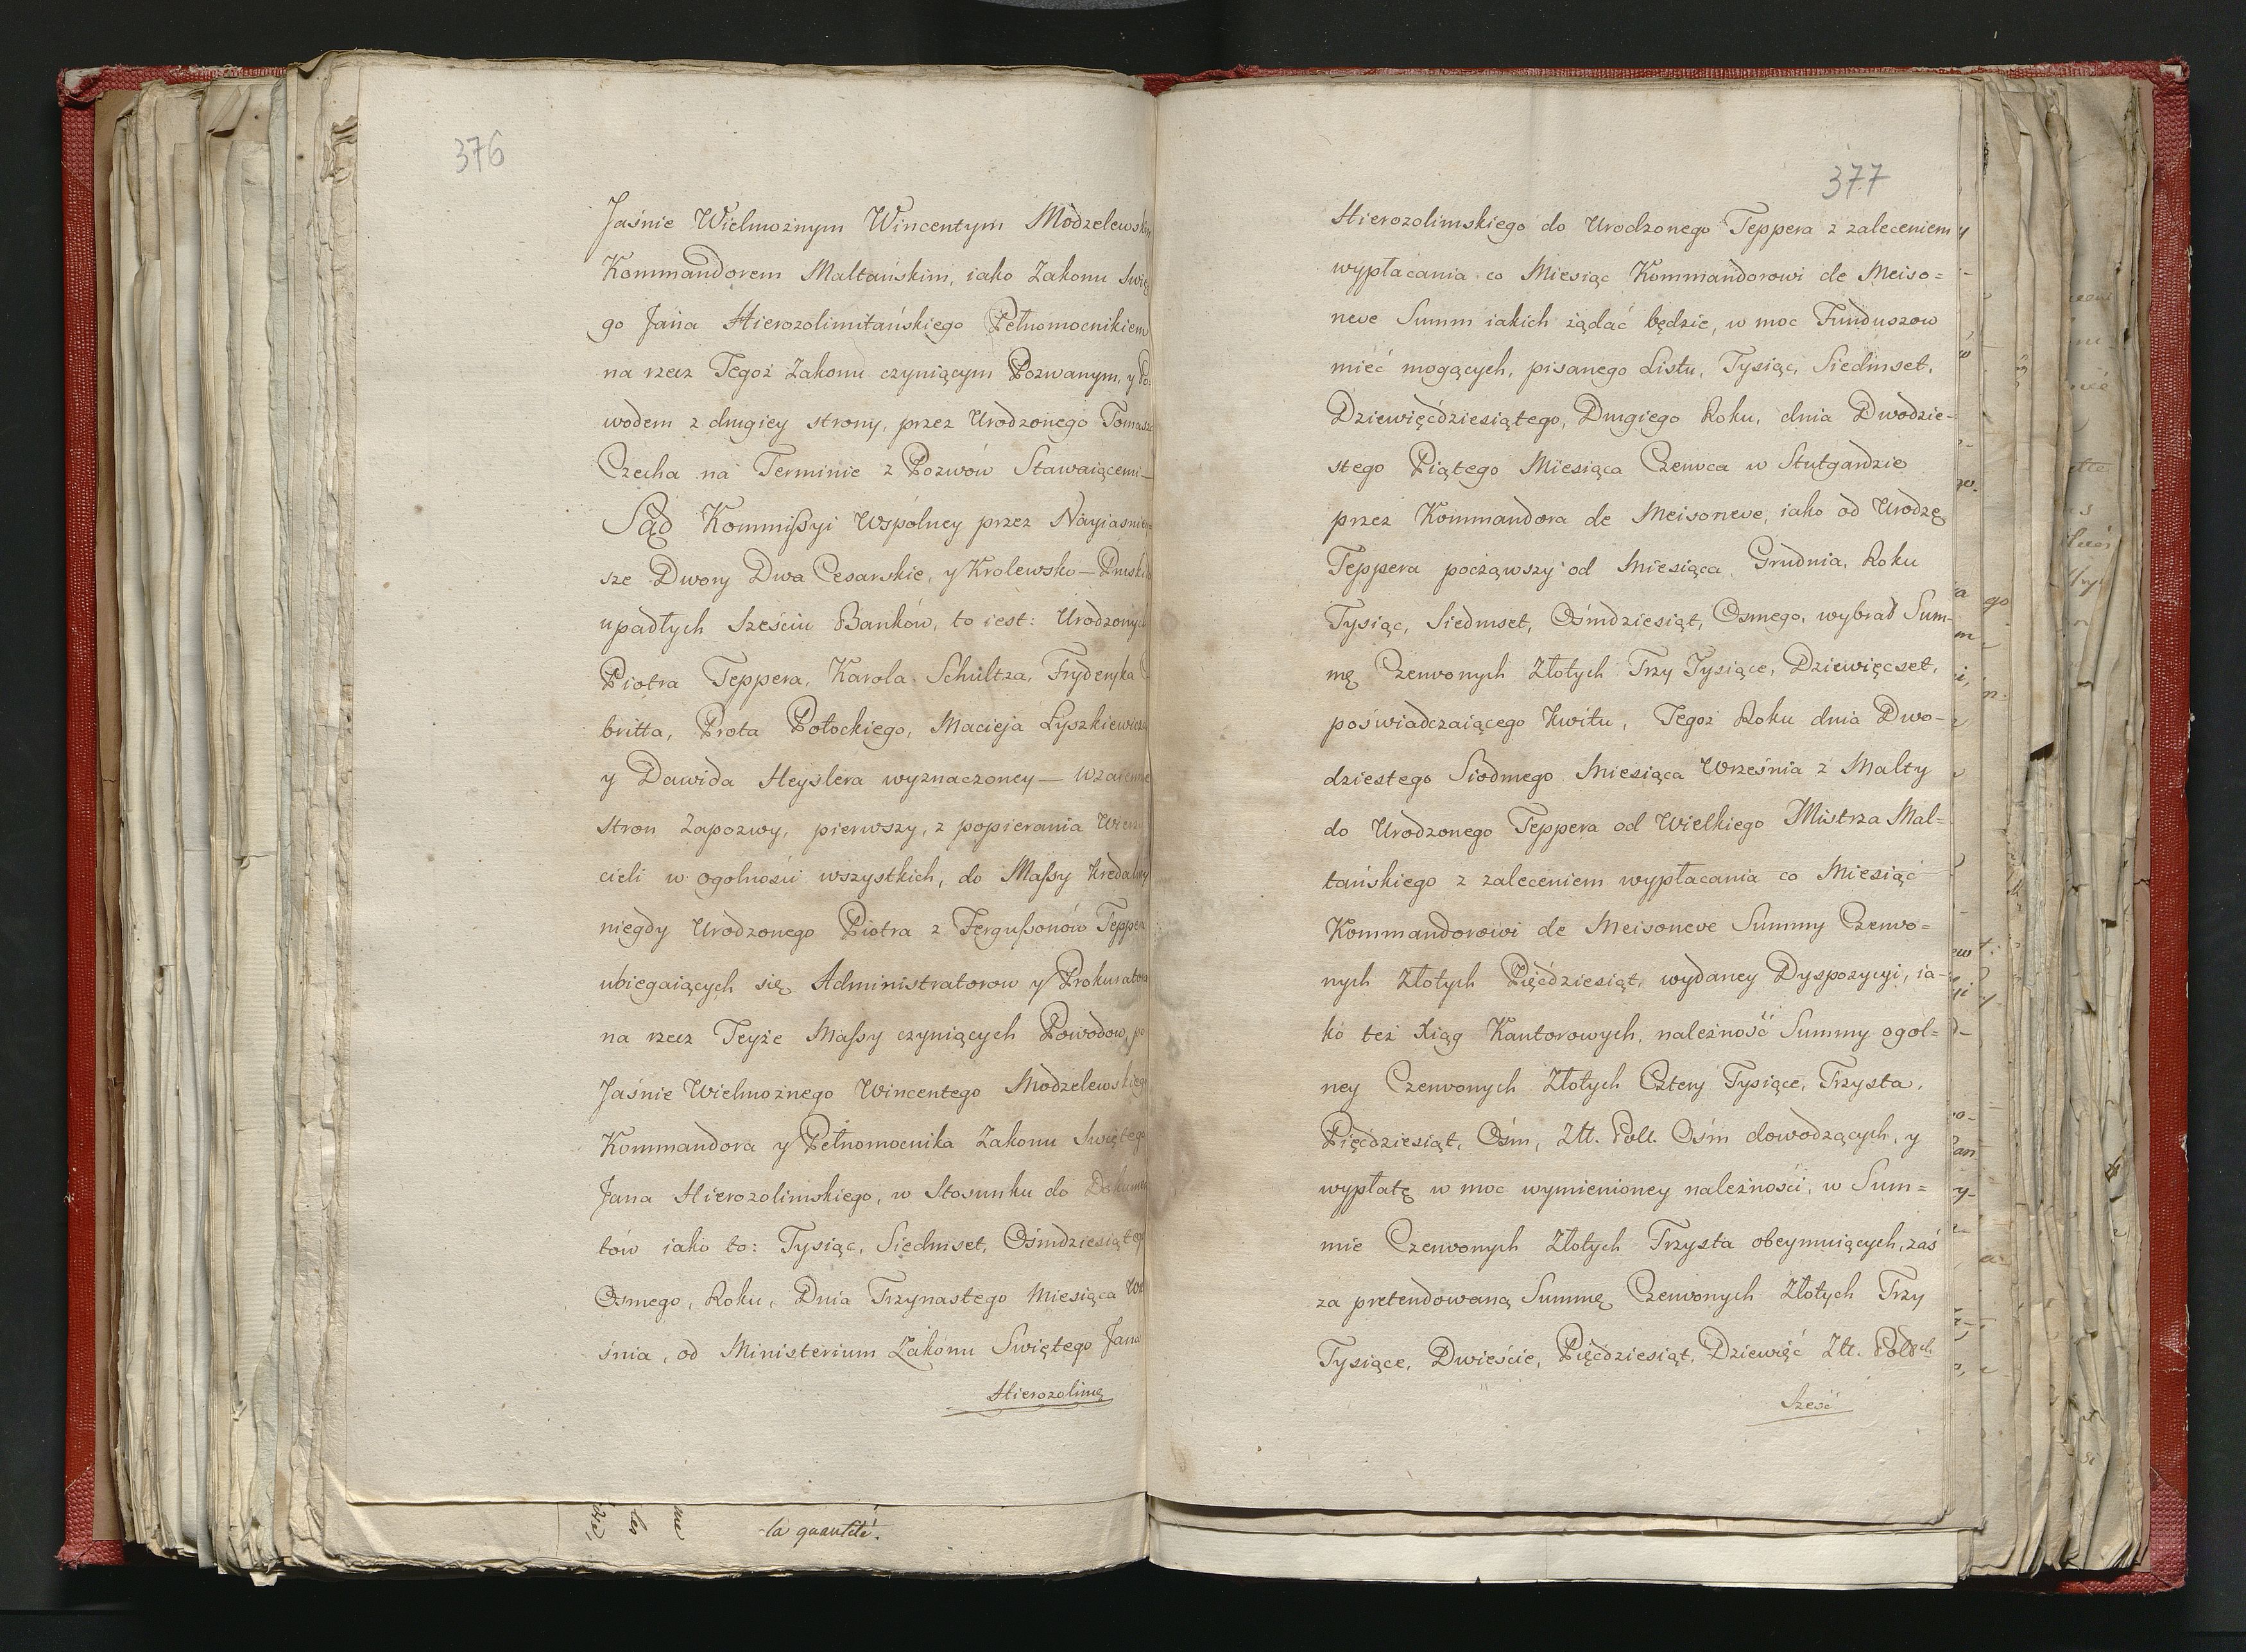 376
Jaśnie Wielmożnym Wincentym Modzelewskim
Kommandorem Maltańskim, iako Zakonu Swię
go Jana Hierozolimitańskiego Pełnomocnikiem
na rzecz Tegoż Zakonu czyniącym Pozwanym, y Po=
wodem z drugiey strony, przez Urodzonego Tomasza
Czecha na Terminie z Pozwów Stawaiącemi—
Sąd Kommißyi Wspólney przez Nayiasniey
sze Dwory Dwa Cesarskie, y Krolewsko—Pruski
upadłych Sześciu Banków, to iest: Urodzonych
Piotra Teppera, Karola Schultza, Fryderyka
britta, Prota Potockiego, Macieja Łyszkiewicza
y Dawida Heyslera wyznaczoney— Wzaiemne
stron Zapozwy, pierwszy, z popierania Wierzy
cieli w ogolności wszystkich, do Maßy Kredalney
niegdy Urodzonego Piotra z Fergußonów Teppera
ubiegaiących się Administratorow y Prokurator
na rzecz Teyże Maßy czyniących Powodow, po
Jaśnie Wielmożnego Wincentego Modzelewskiego
Kommandora y Pełnomocnika Zakonu Swiętego
Jana Hierozolimskiego, w Stosunku do Dokumen
tów iako to: Tysiąc, Siedmset, Ośmdziesiątego
Osmego, Roku, Dnia Trzynastego Miesiąca Wrze
śnia, od Ministerium Zakonu Swiętego Jana
Hierozolimę
la quantité.
377
Hierozolimskiego do Urodzonego Teppera z zaleceniem
wypłacania co Miesiąc Kommandorowi de Meiso=
neve Summ iakich żądać będzie, w moc Funduszow
mieć mogących, pisanego Listu, Tysiąc, Siedmset,
Dziewięćdziesiątego, Drugiego Roku, dnia Dwodzie-
stego Piątego Miesiąca Czerwca w Stutgardzie
przez Kommandora de Meisoneve, iako od Urodzę
Teppera począwszy od Miesiąca Grudnia, Roku
Tysiąc, Siedmset, Ośmdziesiąt, Osmego, wybrał Sum-
mę Czerwonych Złotych Trzy Tysiące, Dziewięcset,
poświadczaiącego Kwitu, Tegoż Roku dnia Dwo-
dziestego Siodmego Miesiąca Września z Malty
do Urodzonego Teppera od Wielkiego Mistrza Mal=
tańskiego z zaleceniem wypłacania co Miesiąc
Kommandorowi de Meisoneve Summy Czerwo=
nych Złotych Pięćdziesiąt, wydaney Dyspozycyi, ia-
ko też Xiąg Kantorowych, należność Summy ogol=
ney Czerwonych Złotych Cztery Tysiące, Trzysta,
Pięćdziesiąt, Ośm, Złł. Poll. Ośm dowodzących, y
wypłatę w moc wymienioney należności, w Sum=
mie Czerwonych Złotych Trzysta obeymuiących, zaś
za pretendowaną Summę Czerwonych Złotych Trzy
Tysiące, Dwieście, Pięćdziesiąt, Dziewięć Złł. Polsch
Sześć